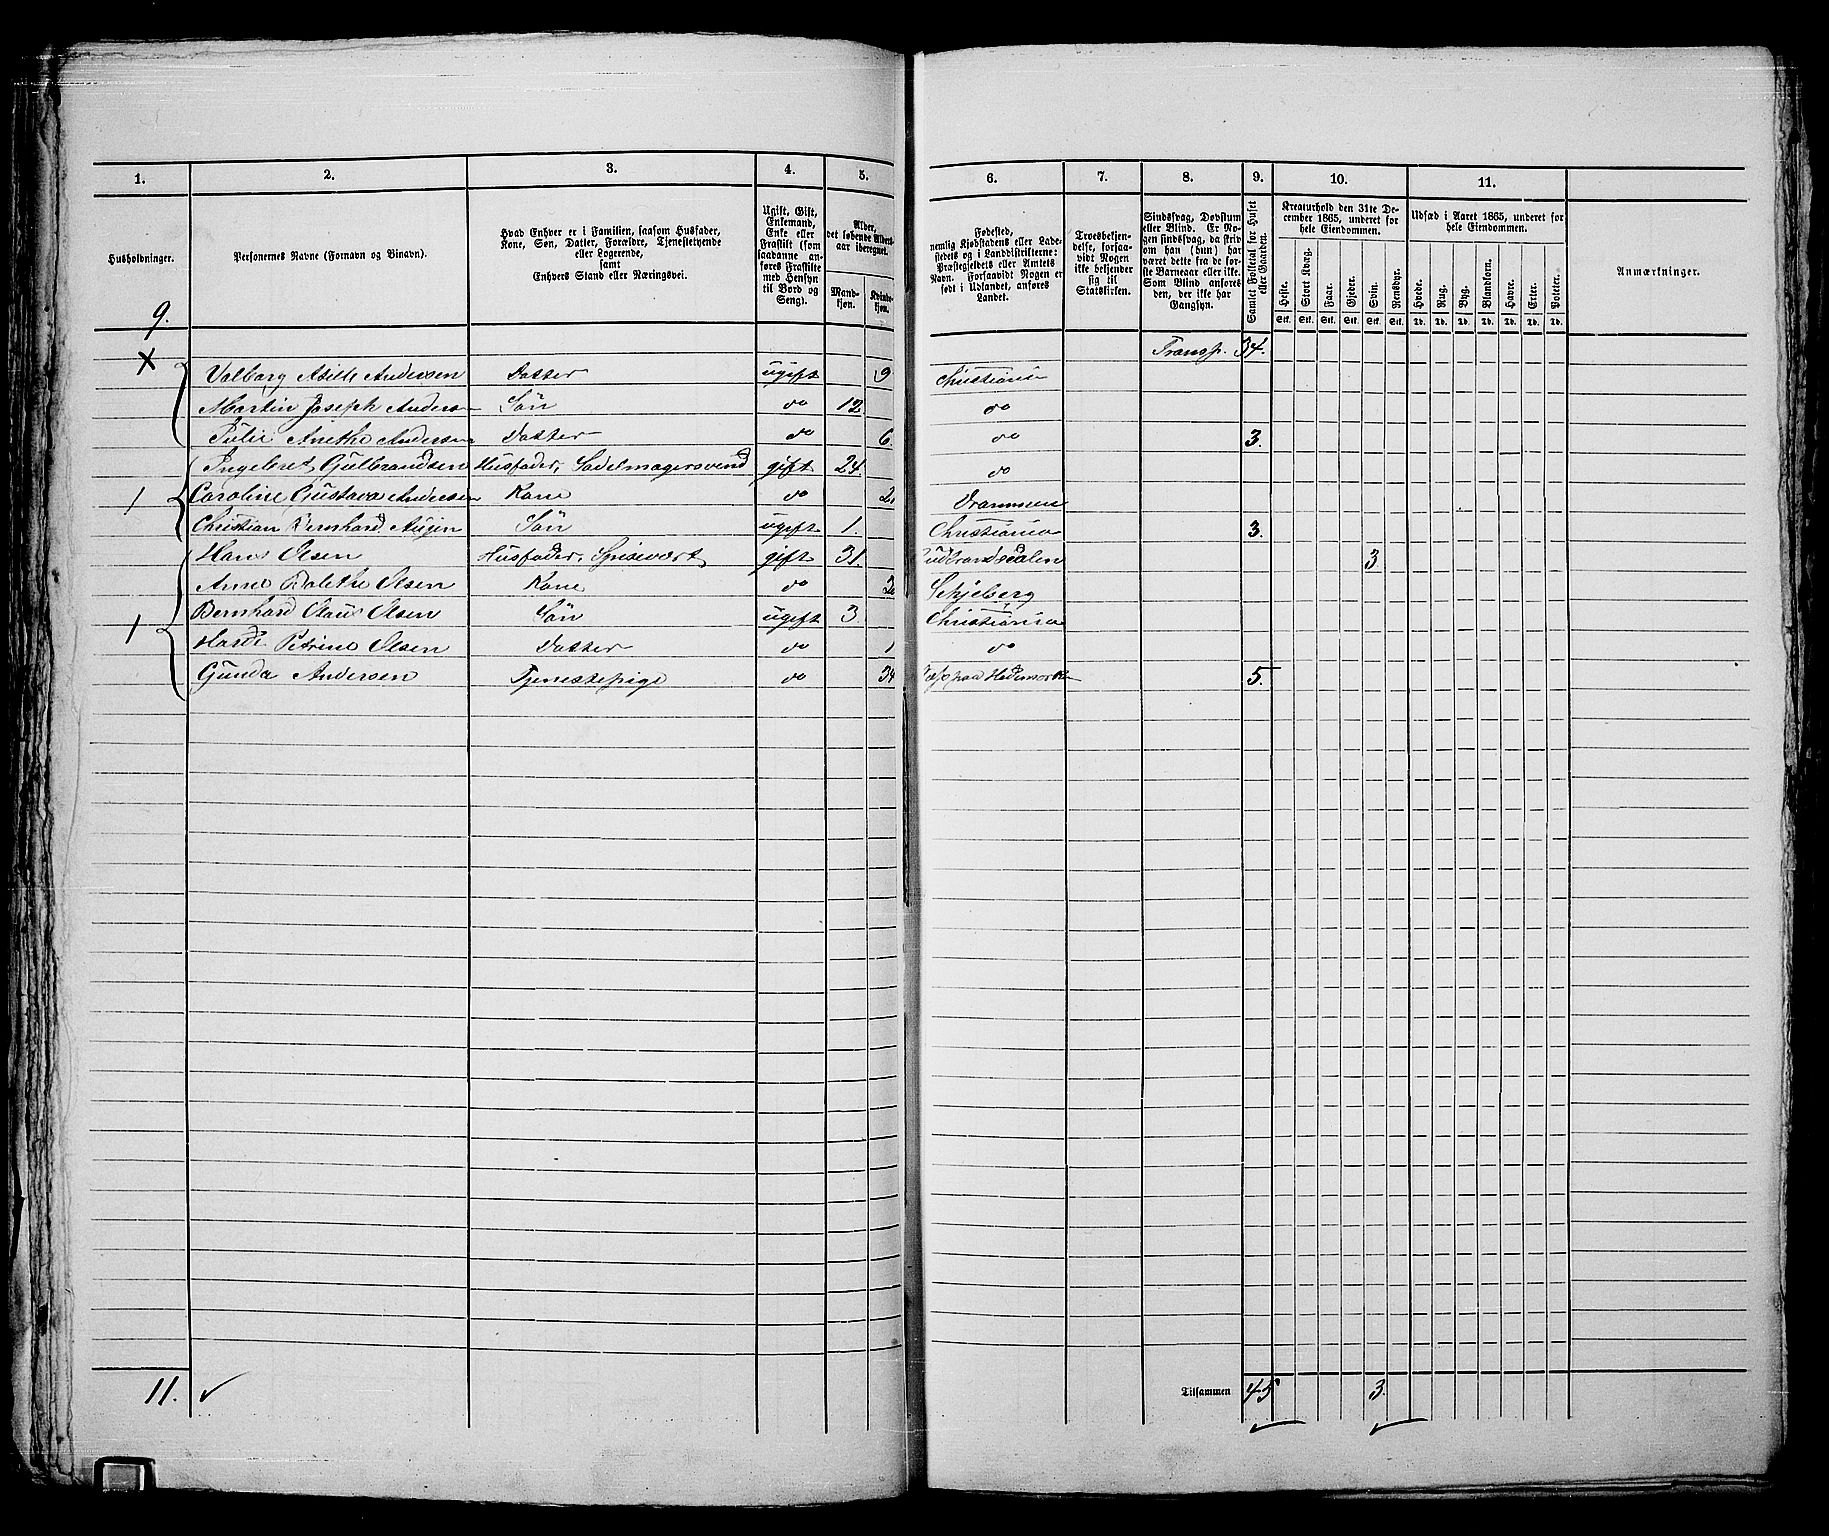 1. 2. 3. 4. 5. 6. 7. 8. 9. 10. 11.
Husholdninger. Personernes Navne (Fornavn og Binavn). Hvad Enhver er i Familien, saasom Husfader, Kone, Søn, Datter, Forældre, Tjenestetyende eller Logerende, samt Enhvers Stand eller Næringsvei. Ugift, Gift, Enkemand, Enke eller Fraskilt (som saadanne anføres Fraskilte med Hensyn til Bord og Seng). Alder, det løbende Alders-aar iberegnet. Mand-kjøn. Kvinde-kjøn.
Fødested, nemlig Kjøbstadens eller Ladestedets og i Landdistrikterne: Præstegjeldets eller Amtets Navn. Forsaavidt Nogen er født i Udlandet, anføres Landet. Troesbekjendelse, forsaavidt Nogen ikke bekjender sig til Statskirken. Sindssvag, Døvstum eller Blind. Er Nogen sindssvag, da skrives om han (hun) har været dette fra de første Barneaar eller ikke. Som Blind anføres den, der ikke har Gangsyn. Samlet Folketal for Huset eller Gaarden. Kreaturhold den 31te December 1865, underet for hele Eiendommen. Udsæd i Aaret 1865, underet for hele Eiendommen. Anmærkninger.
Heste. Stort Kvæg. Faar. Gjeder. Svin. Rensdyr. Hvede. Rug. Byg. Blandkorn. Havre. Erter. Poteter.
Stk. Stk. Stk. Stk. Stk. Stk. Td. Td. Td. Td. Td. Td. Td.
9.
Transp. 34.
x Valborg Andersen Datter ugift 9 Christiania
Martin Joseph Anders Søn do 12 do
Julie Anethe Andersen Datter do 6. do 3.
Ingebret Gulbrandsen Husfader, Sadelmagersvend gift 24. do
1 Caroline Gustava Andersen Kone do Drammen
Christian Bernhard Søn ugift 1. Christiania 3.
Hans Olsen Husfader, Spisevært gift 31. Gudbrandsdalen 3
Anne Olsen Kone do Schjeberg
1 Bernhard Olaus Olsen Søn ugift 3. Christiania
Petrine Olsen Datter do 1 do
Gunda Andersen Tjenestepige do 34 paa Hedemarken 5.
11. Tilsammen 45 3.